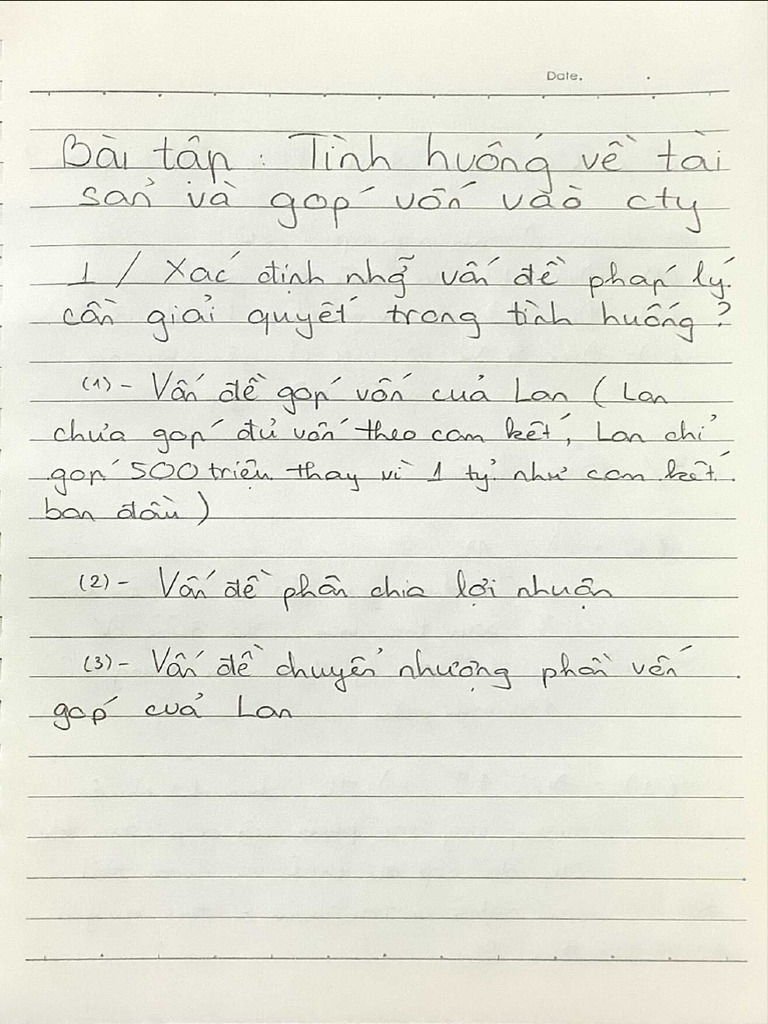 Date.
Bài tập : Tình huống về tài
sản và góp vốn vào cty
1 / Xác định nhg~ vấn đề pháp lý
cần giải quyết trong tình huống ?
(1) - Vấn đề góp vốn của Lan ( Lan
chưa góp đủ vốn theo cam kết, Lan chỉ
góp 500 triệu thay vì 1 tỷ như cam kết
ban đầu )
(2) - Vấn đề phân chia lợi nhuận
(3) - Vấn đề chuyển nhượng phần vốn
góp của Lan